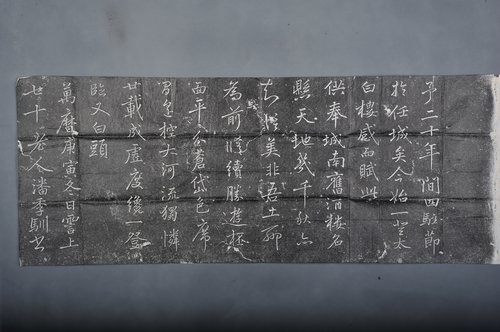 予二十年間四駐節
於任城矣今始一登太
白樓感而賦此
供奉城南舊酒樓名
懸天地幾千秋亦
知信美非吾土聊
為前脩續勝遊
平分蒼岱色席
控大河流獨憐
廿載成虛度纔一登
臨又白頭
萬曆庚寅冬日霅上
七十老人潘季馴書